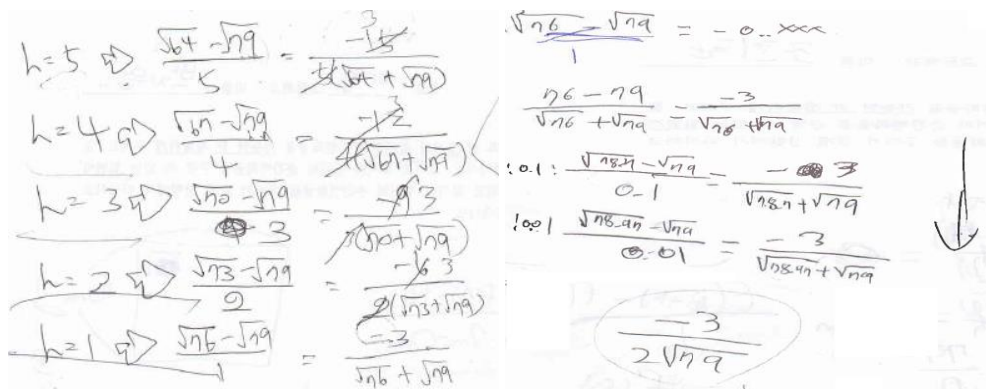 h=5 ⇨ (√64 - √79)/5 = -15 3/5(√64 + √79)
h=4 ⇨ (√67 - √79)/4 = -12 3/4(√67 + √79)
h=3 ⇨ (√70 - √79)/3 = -9 3/3(√70 + √79)
h=2 ⇨ (√73 - √79)/2 = -6 3/2(√73 + √79)
h=1 ⇨ (√76 - √79)/1 = -3/(√76 + √79)
(√76 - √79)/1 = -0..xxx
(76 - 79)/(√76 + √79) = -3/(√76 + √79)
:0.1: (√78.7 - √79)/0.1 = -3/(√78.7 + √79)
:0.01 (√78.97 - √79)/0.01 = -3/(√78.97 + √79)
-3/2√79